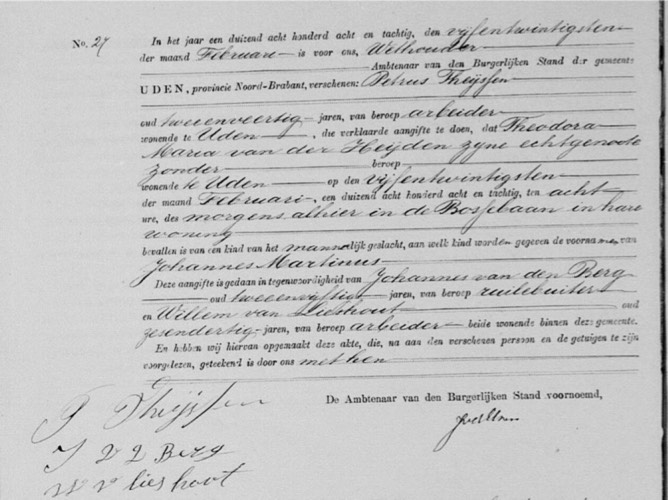 No. 27
In het jaar een duizend acht honderd acht en tachtig, den vijfentwintigsten
der maand Februari is voor ons, Wethouder
Ambtenaar van den Burgerlijken Stand der gemeente
UDEN, provincie Noord-Brabant, verschenen: Petrus Theijssen
oud tweeenveertig jaren, van beroep arbeider
wonende te Uden, die verklaarde aangifte te doen, dat Theodora
Maria van der Heijden zyne echtgenoote
zonder beroep
wonende te Uden op den vijfentwintigsten
der maand Februari, een duizend acht honderd acht en tachtig, ten acht
ure, des morgens alhier in de Bossebaan in hare
woning
bevallen is van een kind van het mannelijk geslacht, aan welk kind worden gegeven de voornamen van
Johannes Martinus
Deze aangifte is gedaan in tegenwoordigheid van Johannes van den Berg
oud tweeenvijftig jaren, van beroep
en Willem van Lieshout oud
zesendertig jaren, van beroep arbeider beide wonende binnen deze gemeente.
En hebben wij hiervan opgemaakt deze akte, die, na aan den verschenen persoon en de getuigen te zijn
voorgelezen, geteekend is door ons met hen
De Ambtenaar van den Burgerlijken Stand voornoemd,
P Theijssen
J v d Berg
W v lieshout